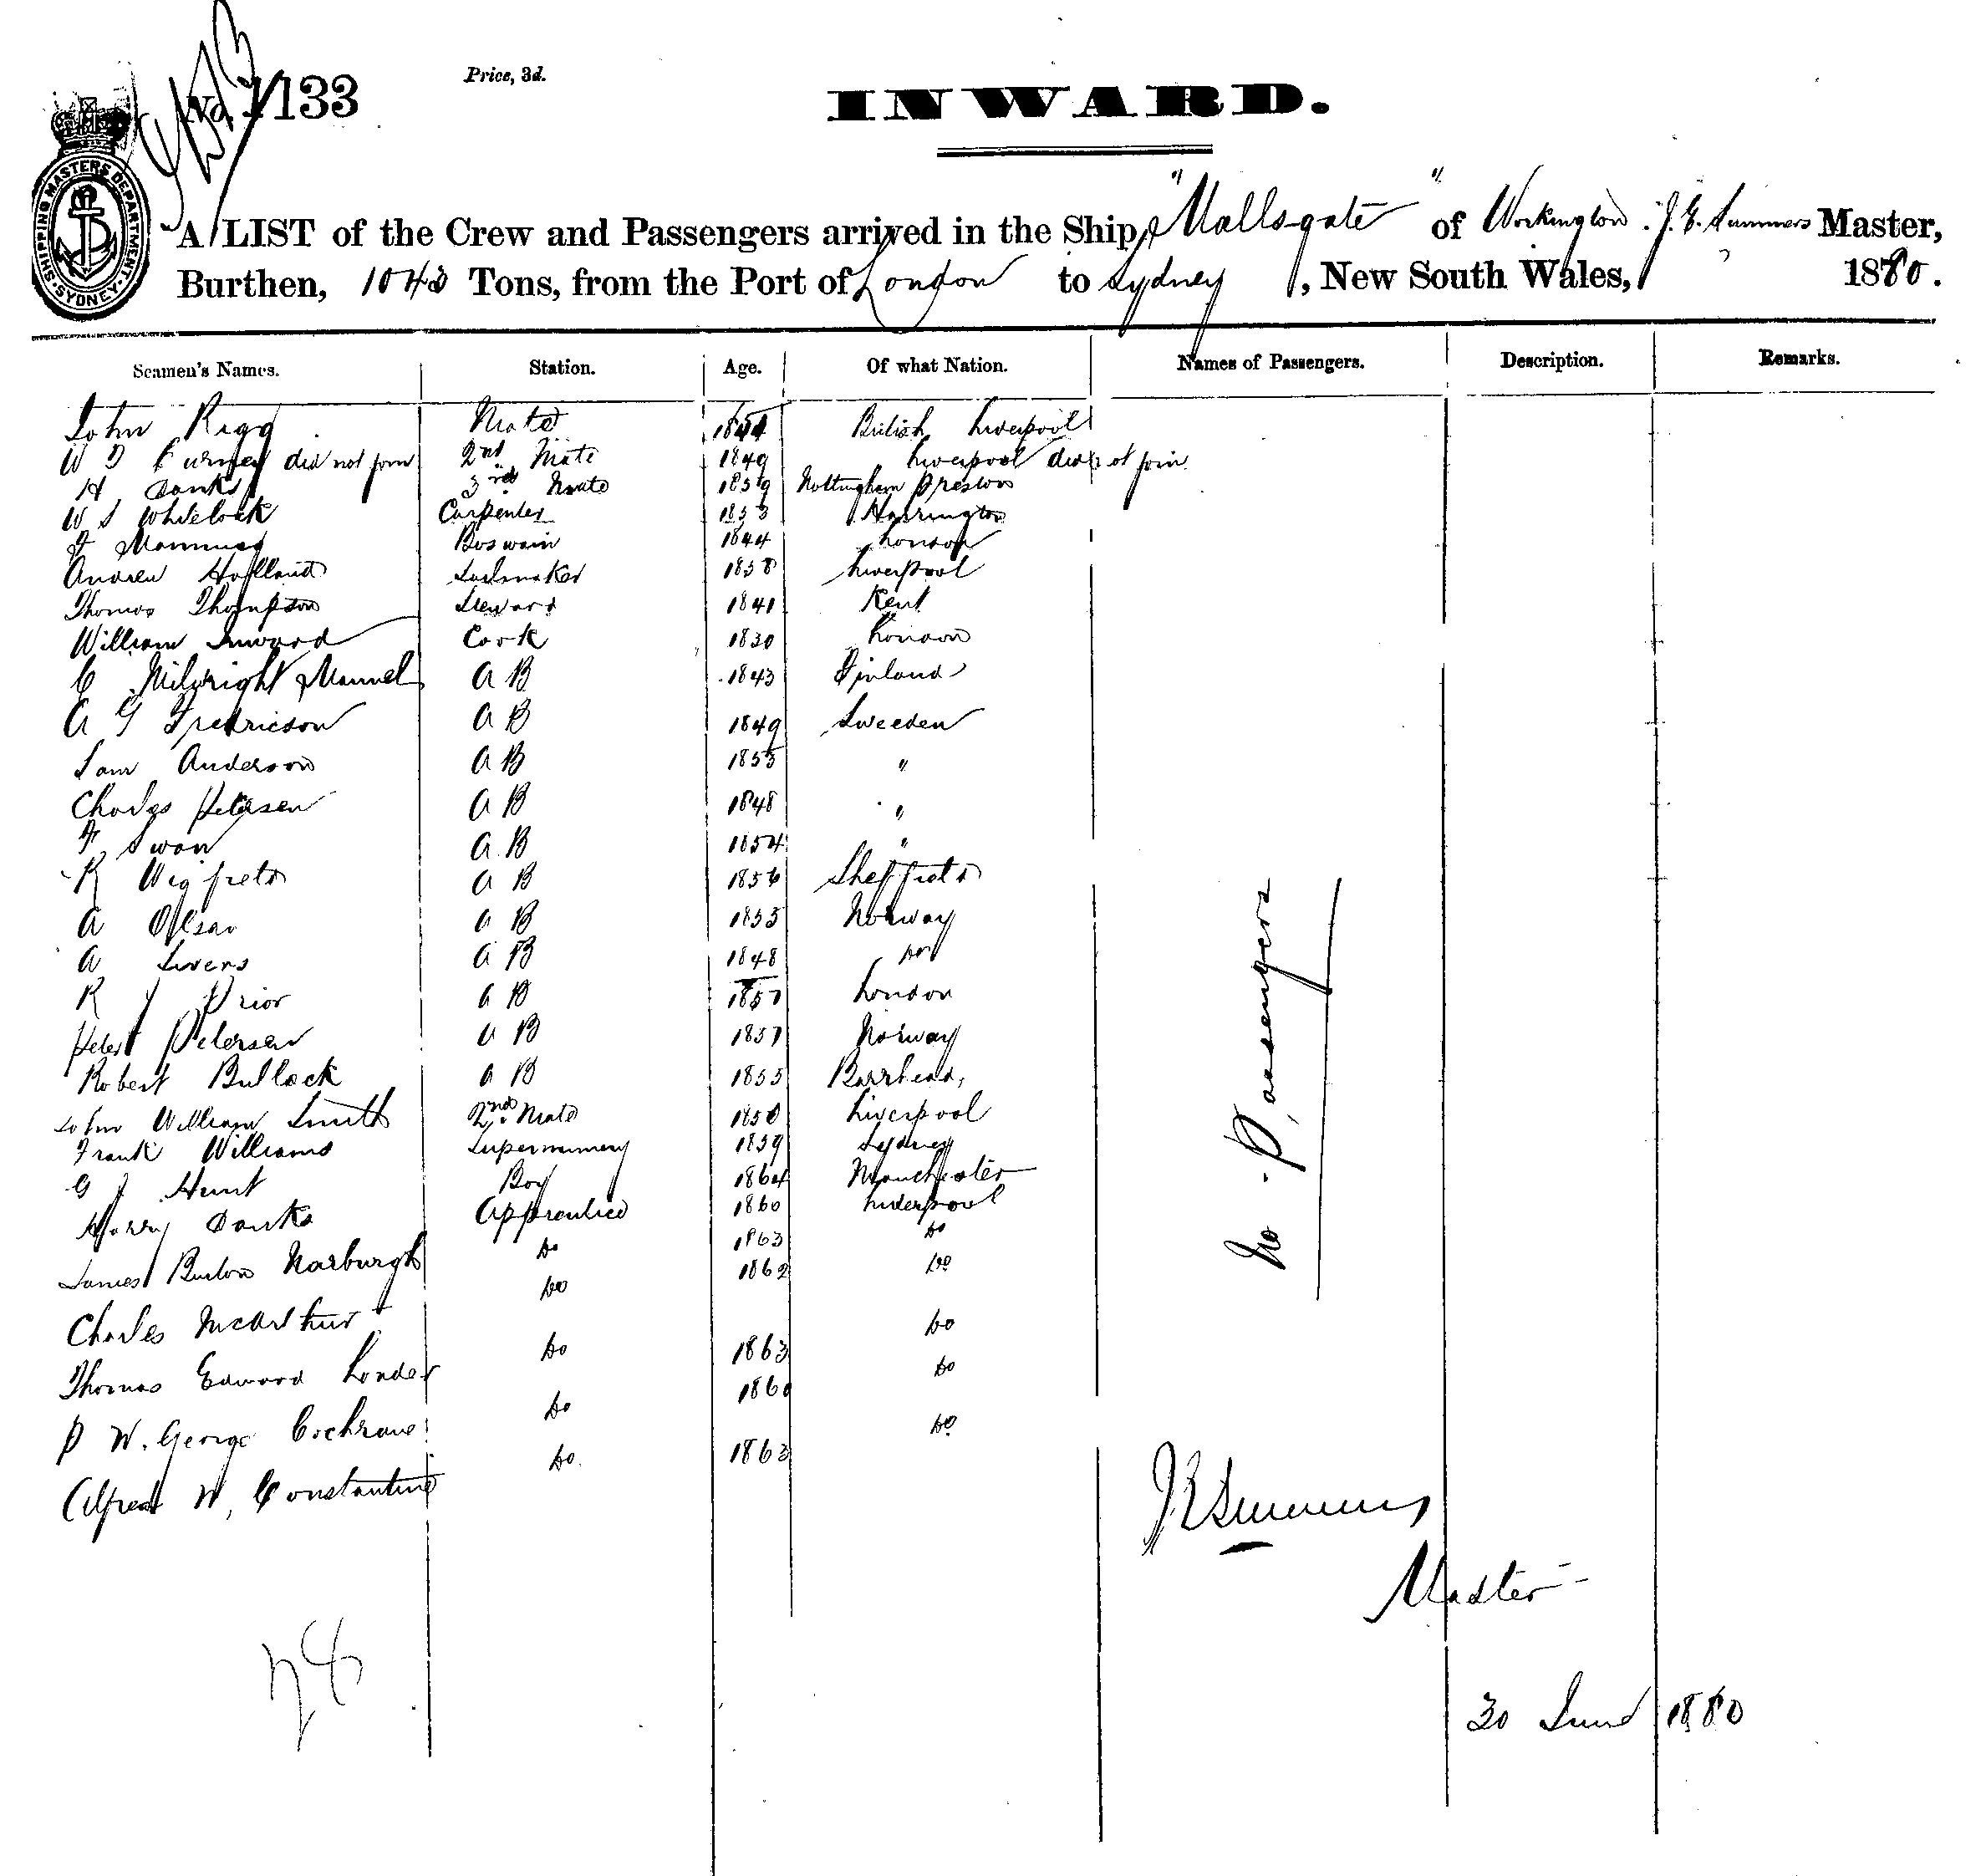 No. 1133
Price, 3d.
INWARD.
SHIPPING MASTERS DEPARTMENT. SYDNEY.
A LIST of the Crew and Passengers arrived in the Ship "Mallsgate" of Workington. J. E. Summers Master,
Burthen, 1043 Tons, from the Port of London to Sydney, New South Wales, 1880.
Seamen's Names. Station. Age. Of what Nation. Names of Passengers. Description. Remarks.
John Rigg Mate British Liverpool
did not join 2nd Mate 1849 Liverpool did not join
H. Danks 3rd Mate 1859 Nottingham Preston
W S Whitelock Carpenter 1853 Harrington
Boswain 1844 London
Andrew Holland Sailmaker 1858 Liverpool
Thomas Thompson Steward 1841 Kent
William Inward Cook 1830 London
C Milwright Manuel A B 1843 Finland
A G Fredricson A B 1849 Sweeden
Sam Anderson A B 1853 "
Charles Petersen A B 1848 "
F Swan A B 1854 "
R Wigfield A B 1856 Sheffield
A Olsen A B 1853 Norway
A Sivers A B 1848 Do
R J Prior A B 1857 London
Peter Petersen A B 1857 Norway
Robert Bullock A B 1855 Barrhead,
John William Smith 2nd Mate 1850 Liverpool
Frank Williams Supernumery 1859 Sydney
G J Hunt Boy 1864 Manchester
Harry Danks Apprentice 1860 Liverpool
James Burton Narburgh Do 1863 Do
Charles McArthur Do 1862 Do
Thomas Edward Londer Do 1863 Do
P W. George Cochrane Do 1860 Do
Alfred W. Constantine Do. 1863 Do
No Passengers
J E Summers
Master
28
30 June 1880